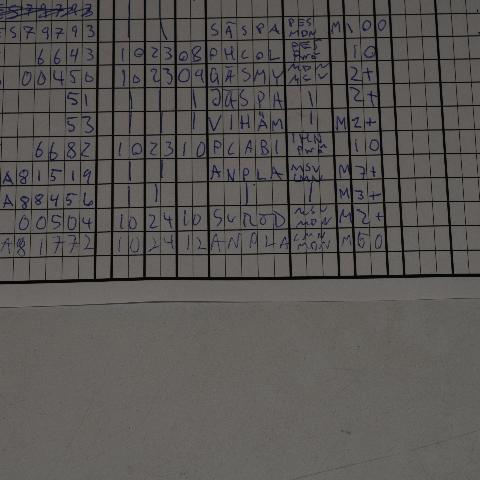 ES79793 | | SASPA PES MON M100
6643 10 23 08 PHCOL PES 10
00450 10 23 09 GASMY MON MSV 2+
51 | | | JASPA | 2+
53 | | | VIHAM | M2+
6682 10 23 10 PCABI 10
A81519 | | ANPLA MSV M7+
A88456 | | | | M3+
00504 10 24 10 MSV MON M2+
A81772 10 24 12 ANPLA MON M50